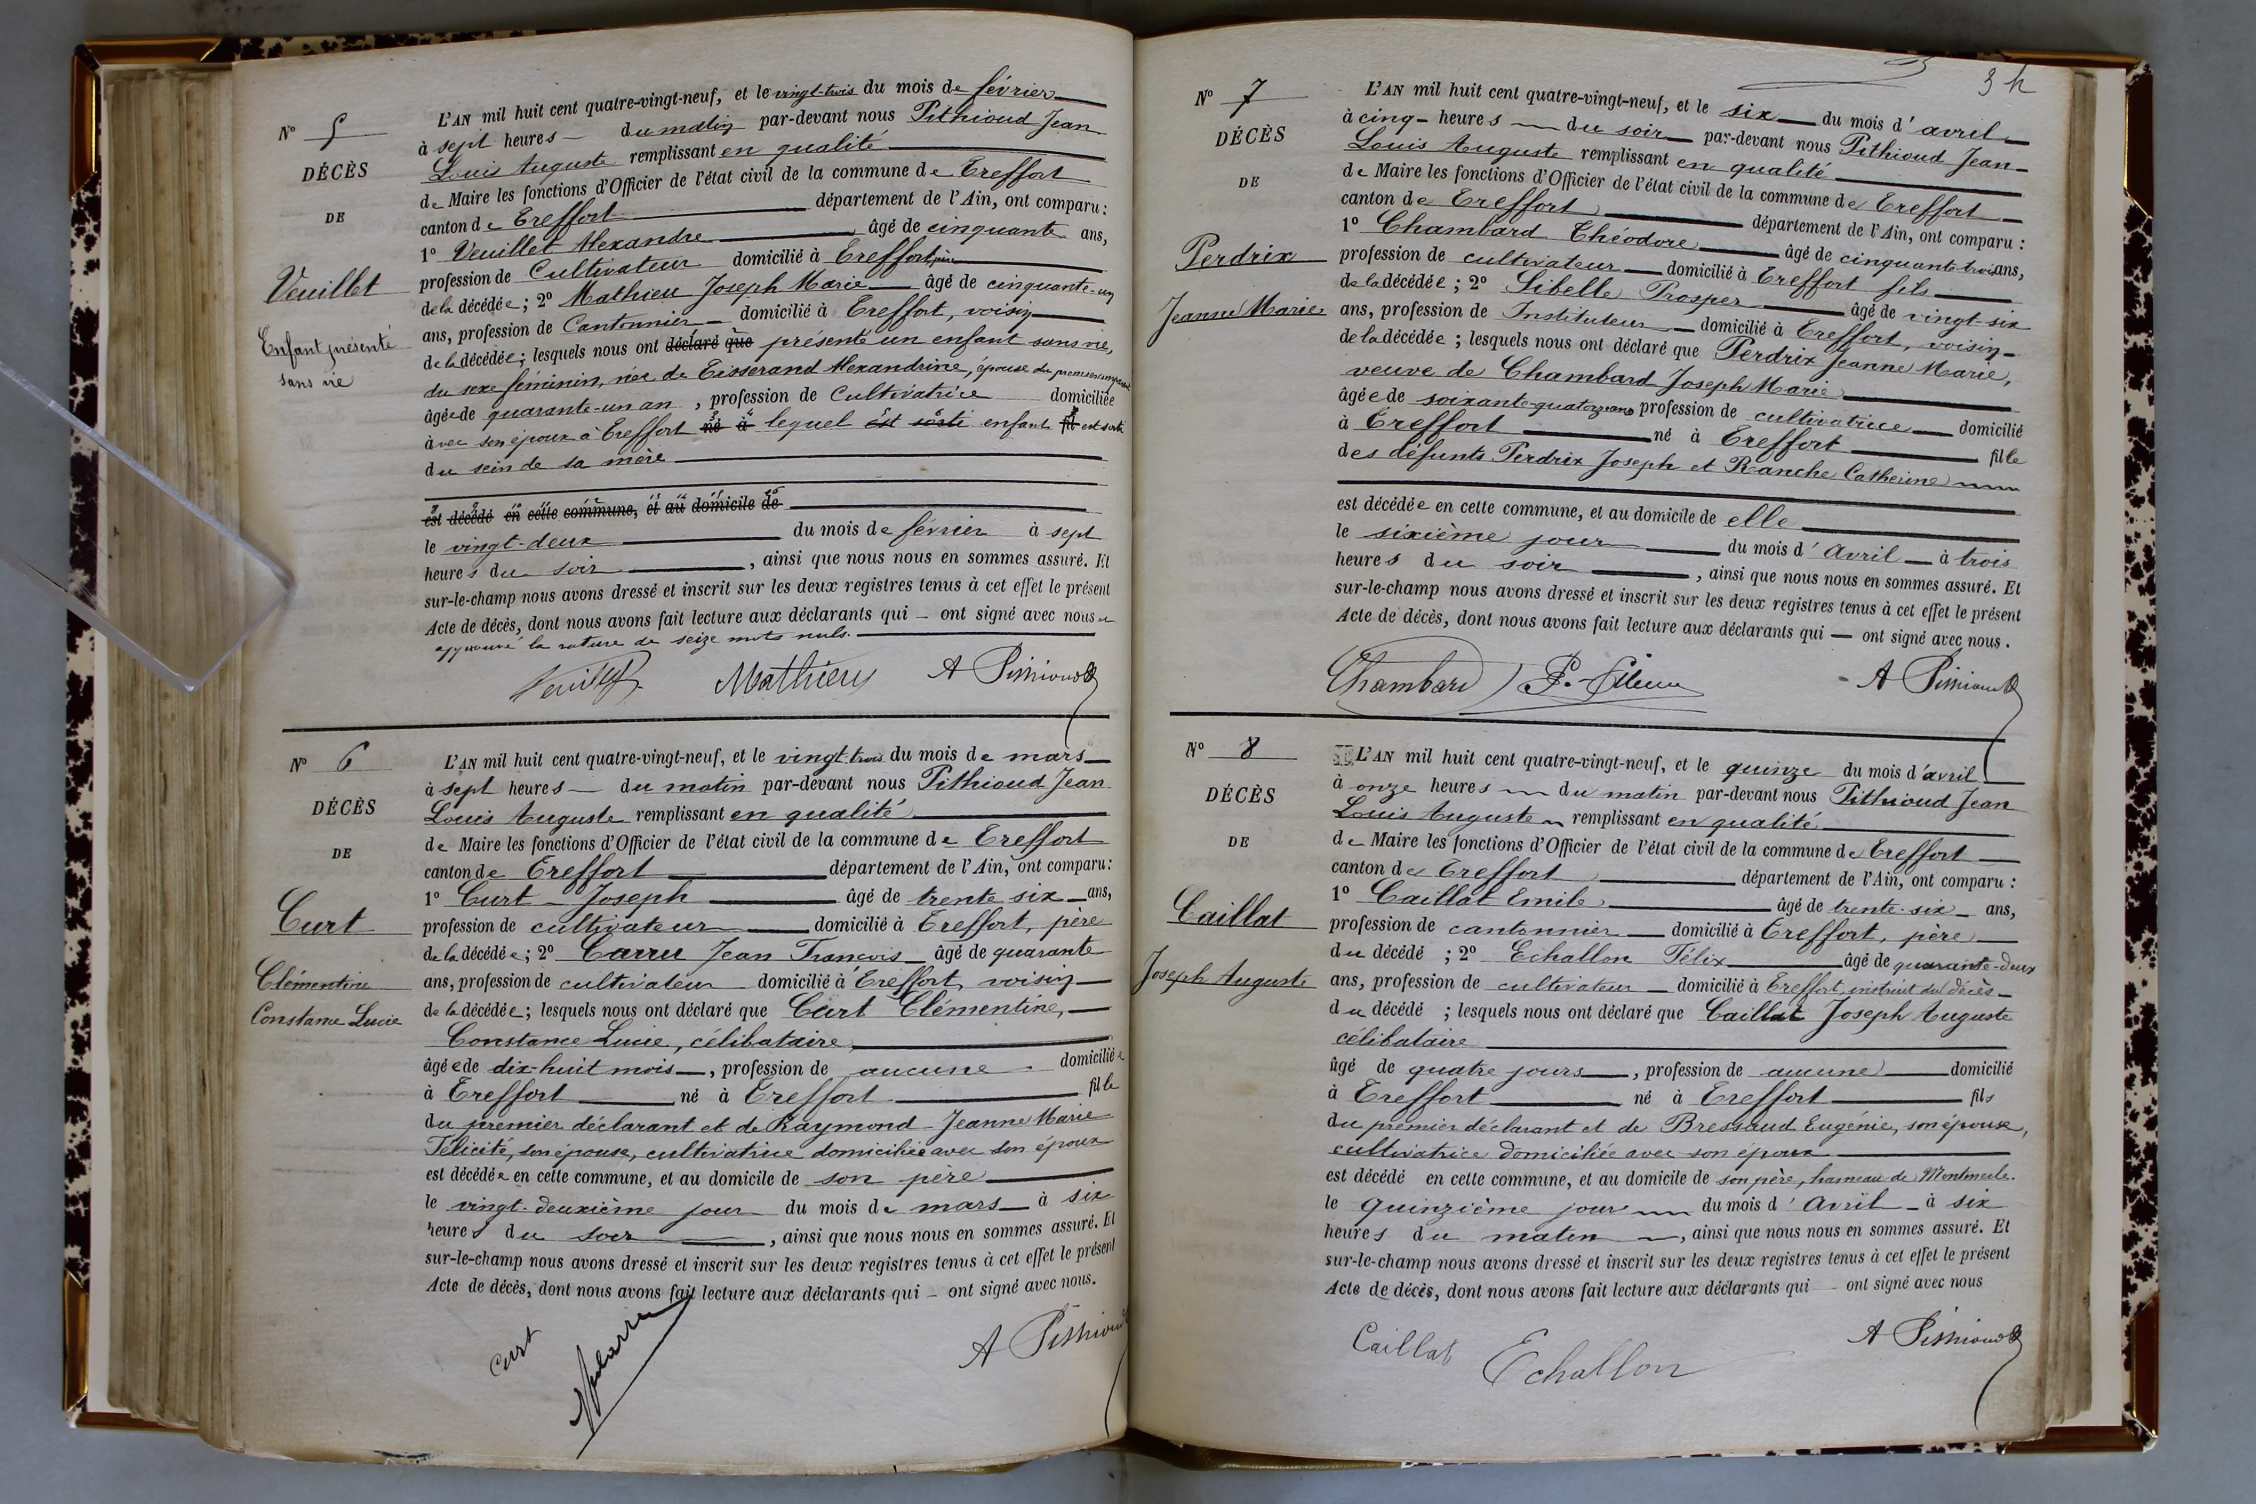 N° 5
DÉCÈS
DE
Veuillet
Enfant présenté
sans vie
L'AN mil huit cent quatre-vingt-neuf, et le vingt-trois du mois de février
à sept heures du matin par-devant nous Pithioud Jean
Louis Auguste remplissant en qualité
de Maire les fonctions d'Officier de l'état civil de la commune de Treffort
canton de Treffort département de l'Ain, ont comparu :
1° Veuillet Alexandre âgé de cinquante ans,
profession de Cultivateur domicilié à Treffort, père
de la décédée ; 2° Mathieu Joseph Marie âgé de cinquante-un
ans, profession de Cantonnier domicilié à Treffort, voisin
de la décédée ; lesquels nous ont déclaré que présenté un enfant sans vie,
du sexe féminin, née de Tisserand Alexandrine, épouse du premier comparant
âgée de quarante-un an, profession de Cultivatrice domiciliée
avec son époux à Treffort né à lequel est sorti enfant fil est sorti
du sein de sa mère
est décédé en cette commune, et au domicile de
le vingt-deux du mois de février à sept
heures du soir, ainsi que nous nous en sommes assuré. Et
sur-le-champ nous avons dressé et inscrit sur les deux registres tenus à cet effet le présent
Acte de décès, dont nous avons fait lecture aux déclarants qui ont signé avec nous et
approuvé la rature de seize mots nuls.
Veuillet Mathieu A Pithioud
N° 6
DÉCÈS
DE
Curt
Clémentine
Constance Lucie
L'AN mil huit cent quatre-vingt-neuf, et le vingt-trois du mois de mars
à sept heures du matin par-devant nous Pithioud Jean
Louis Auguste remplissant en qualité
de Maire les fonctions d'Officier de l'état civil de la commune de Treffort
canton de Treffort département de l'Ain, ont comparu :
1° Curt Joseph âgé de trente six ans,
profession de cultivateur domicilié à Treffort, père
de la décédée ; 2° Carru Jean François âgé de quarante
ans, profession de cultivateur domicilié à Treffort, voisin
de la décédée ; lesquels nous ont déclaré que Curt Clémentine,
Constance Lucie, célibataire,
âgée de dix-huit mois, profession de aucune domiciliée
à Treffort né à Treffort fille
du premier déclarant et de Raymond Jeanne Marie
Félicité, son épouse, cultivatrice domiciliée avec son époux
est décédée en cette commune, et au domicile de son père
le vingt-deuxième jour du mois de mars à six
heures du soir, ainsi que nous nous en sommes assuré. Et
sur-le-champ nous avons dressé et inscrit sur les deux registres tenus à cet effet le présent
Acte de décès, dont nous avons fait lecture aux déclarants qui ont signé avec nous.
Curt A Pithioud
34
N° 7
DÉCÈS
DE
Perdrix
Jeanne Marie
L'AN mil huit cent quatre-vingt-neuf, et le six du mois d'avril
à cinq heures du soir par-devant nous Pithioud Jean
Louis Auguste remplissant en qualité
de Maire les fonctions d'Officier de l'état civil de la commune de Treffort
canton de Treffort département de l'Ain, ont comparu :
1° Chambard Théodore âgé de cinquante trois ans,
profession de cultivateur domicilié à Treffort fils
de la décédée ; 2° Sibelle Prosper âgé de vingt-six
ans, profession de Instituteur domicilié à Treffort, voisin
de la décédée ; lesquels nous ont déclaré que Perdrix Jeanne Marie,
veuve de Chambard Joseph Marie
âgée de soixante-quatorze ans profession de cultivatrice domicilié
à Treffort né à Treffort fille
des défunts Perdrix Joseph et Ranche Catherine
est décédée en cette commune, et au domicile de elle
le sixième jour du mois d'avril à trois
heures du soir, ainsi que nous nous en sommes assuré. Et
sur-le-champ nous avons dressé et inscrit sur les deux registres tenus à cet effet le présent
Acte de décès, dont nous avons fait lecture aux déclarants qui ont signé avec nous.
Chambard A Pithioud
N° 8
DÉCÈS
DE
Caillat
Joseph Auguste
L'AN mil huit cent quatre-vingt-neuf, et le quinze du mois d'avril
à onze heures du matin par-devant nous Pithioud Jean
Louis Auguste remplissant en qualité
de Maire les fonctions d'Officier de l'état civil de la commune de Treffort
canton de Treffort département de l'Ain, ont comparu :
1° Caillat Emile âgé de trente-six ans,
profession de cantonnier domicilié à Treffort, père
du décédé ; 2° Echallon Félix âgé de quarante-deux
ans, profession de cultivateur domicilié à Treffort, instruit du décès
du décédé ; lesquels nous ont déclaré que Caillat Joseph Auguste
célibataire
âgé de quatre jours, profession de aucune domicilié
à Treffort né à Treffort fils
du premier déclarant et de Bressaud Eugénie, son épouse,
cultivatrice domiciliée avec son époux
est décédé en cette commune, et au domicile de son père, hameau de Montmerle.
le quinzième jour du mois d'avril à six
heures du matin, ainsi que nous nous en sommes assuré. Et
sur-le-champ nous avons dressé et inscrit sur les deux registres tenus à cet effet le présent
Acte de décès, dont nous avons fait lecture aux déclarants qui ont signé avec nous
Caillat Echallon A Pithioud